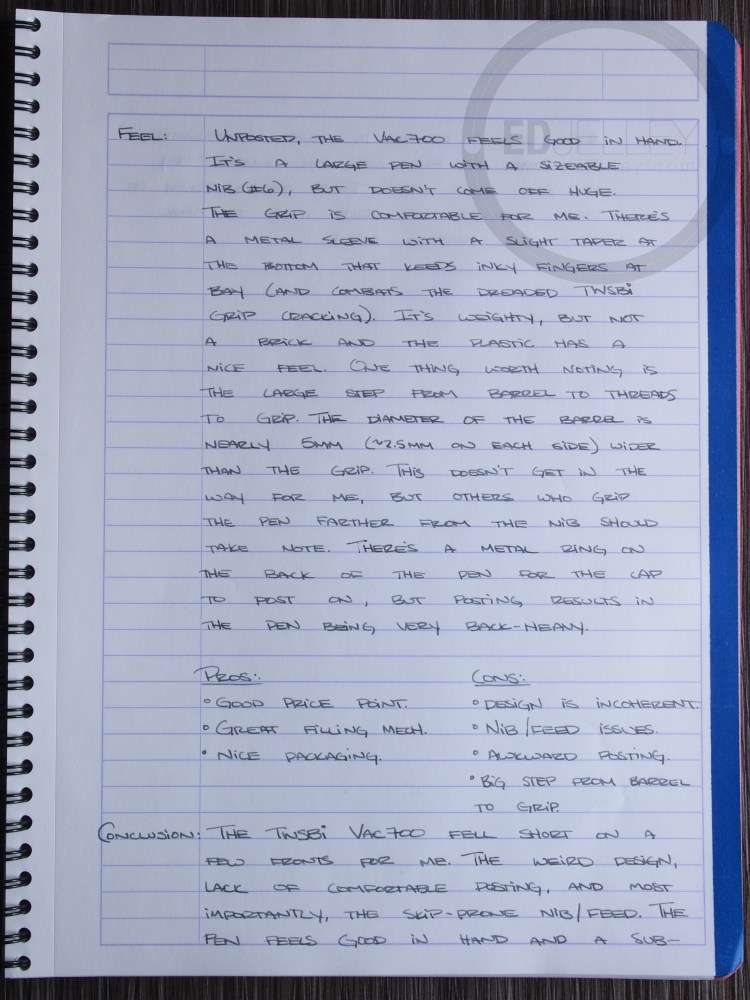 Feel: Unposted, the Vac700 feels good in hand.
It's a large pen with a sizeable
nib (#6), but doesn't come off huge.
The grip is comfortable for me. There's
a metal sleeve with a slight taper at
the bottom that keeps inky fingers at
bay (and combats the dreaded TWSBI
grip cracking). It's weighty, but not
a brick and the plastic has a
nice feel. One thing worth noting is
the large step from barrel to threads
to grip. The diameter of the barrel is
nearly 5mm (~2.5mm on each side) wider
than the grip. This doesn't get in the
way for me, but others who grip
the pen farther from the nib should
take note. There's a metal ring on
the back of the pen for the cap
to post on, but posting results in
the pen being very back-heavy.
Pros: Cons:
° Good price point. ° Design is incoherent.
° Great filling mech. ° Nib/feed issues.
• Nice packaging. ° Awkward posting.
• Big step from barrel
to grip.
Conclusion: The TWSBI Vac700 fell short on a
few fronts for me. The weird design,
lack of comfortable posting, and most
importantly, the skip-prone nib/feed. The
pen feels good in hand and a sub-
ED JELLEY